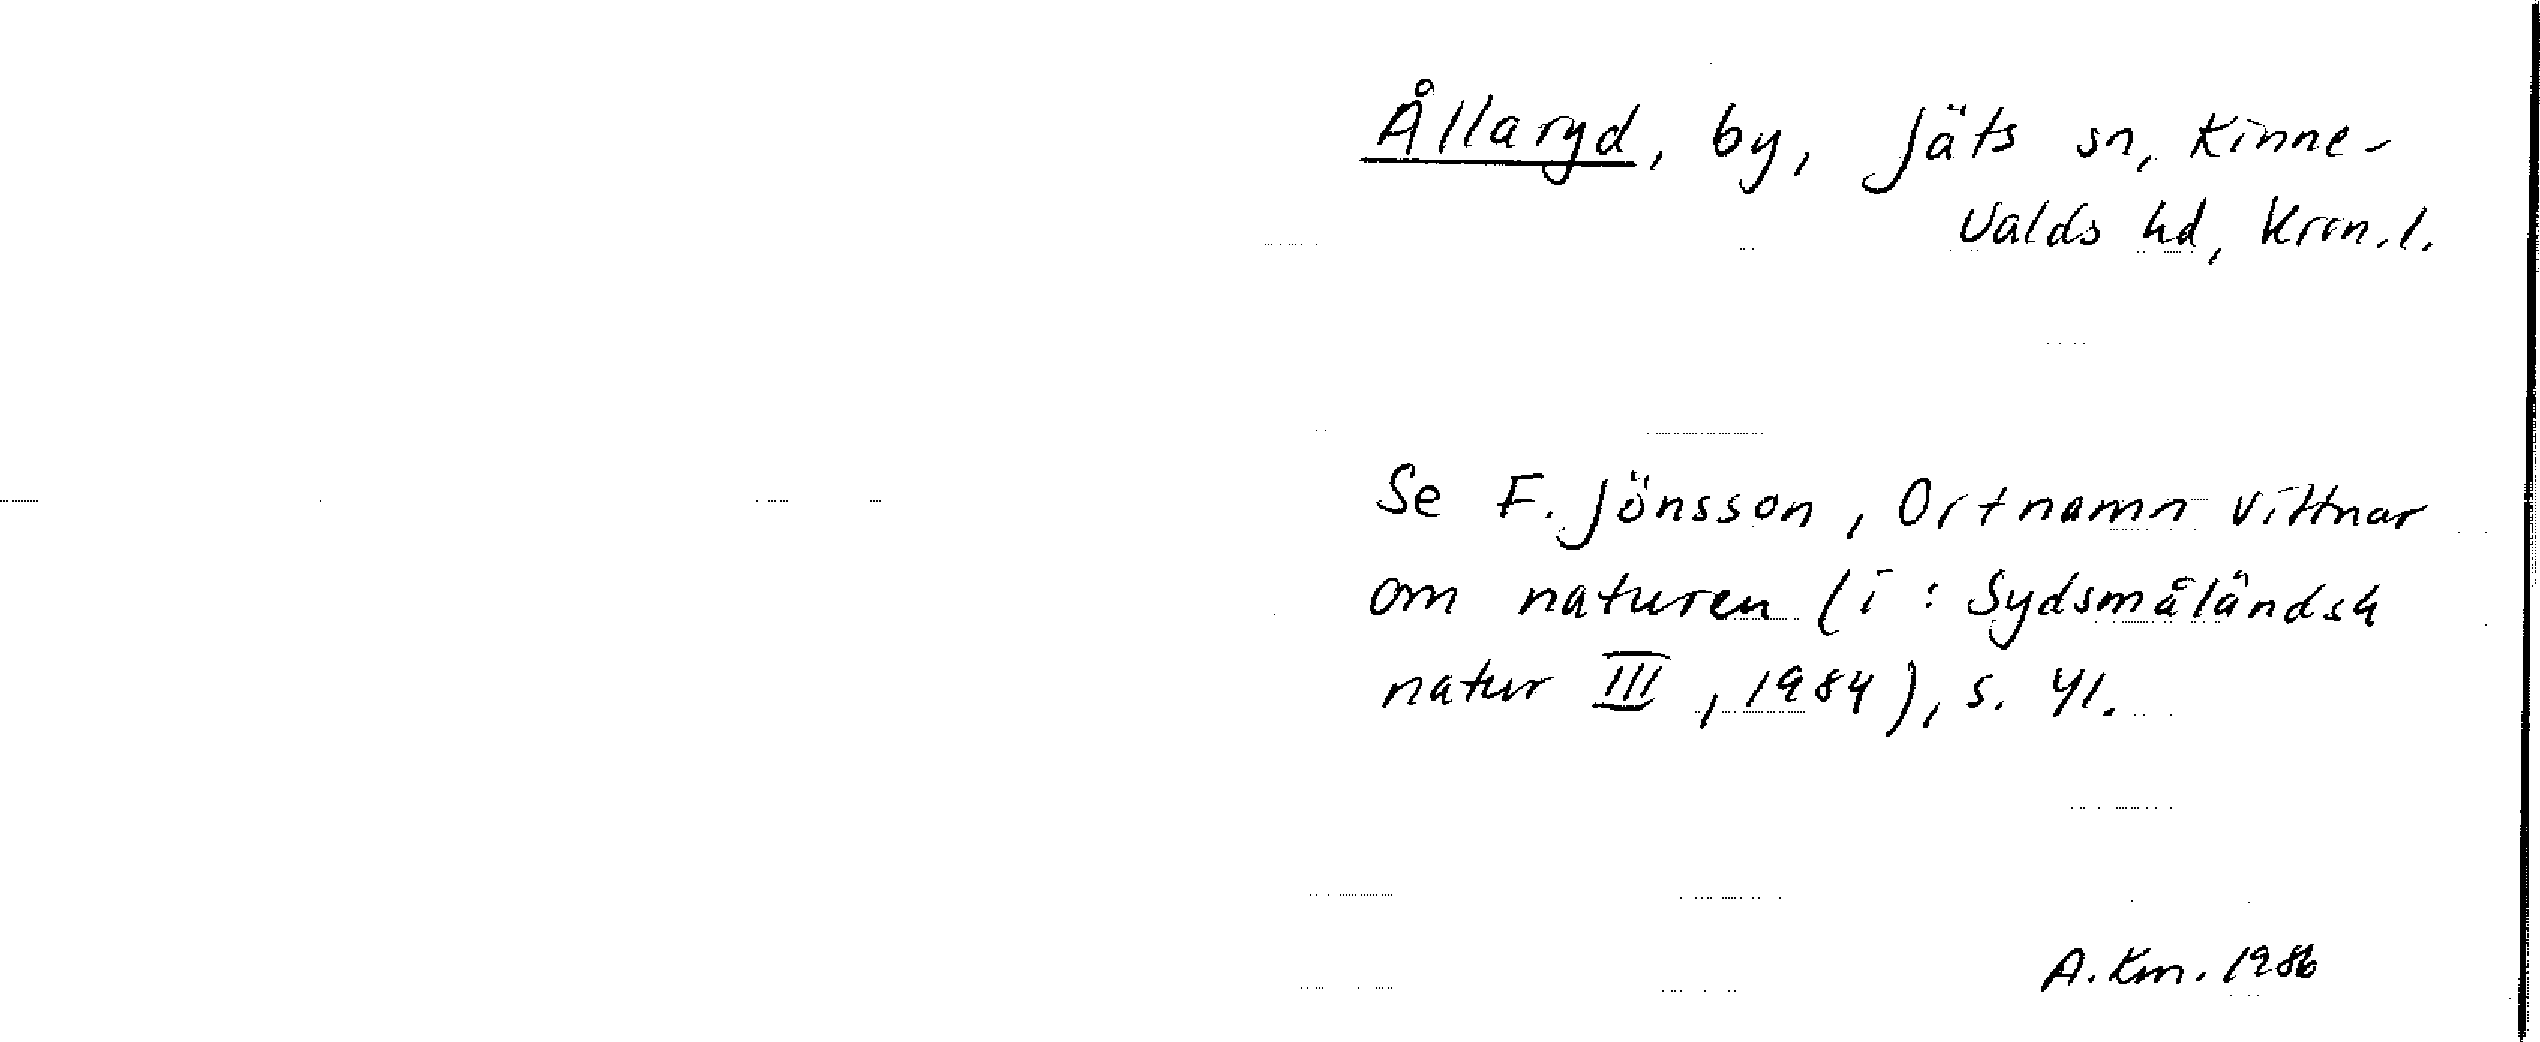 Ållaryd, by, Jäts sn, Kinne-
valds hd, Kron.l.
Se F. Jönsson, Ortnamn vittnar
om naturen (i: Sydsmåländsk
natur III, 1984), s. 41.
A.Km. 1986